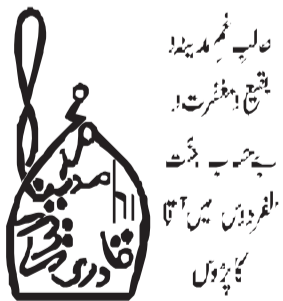 طالبِ غمِ مدینہ و
بقیع و مغفرت و
بے حساب جنّت
الفردوس میں آقا
کا پڑوس
مدینہ
قادری